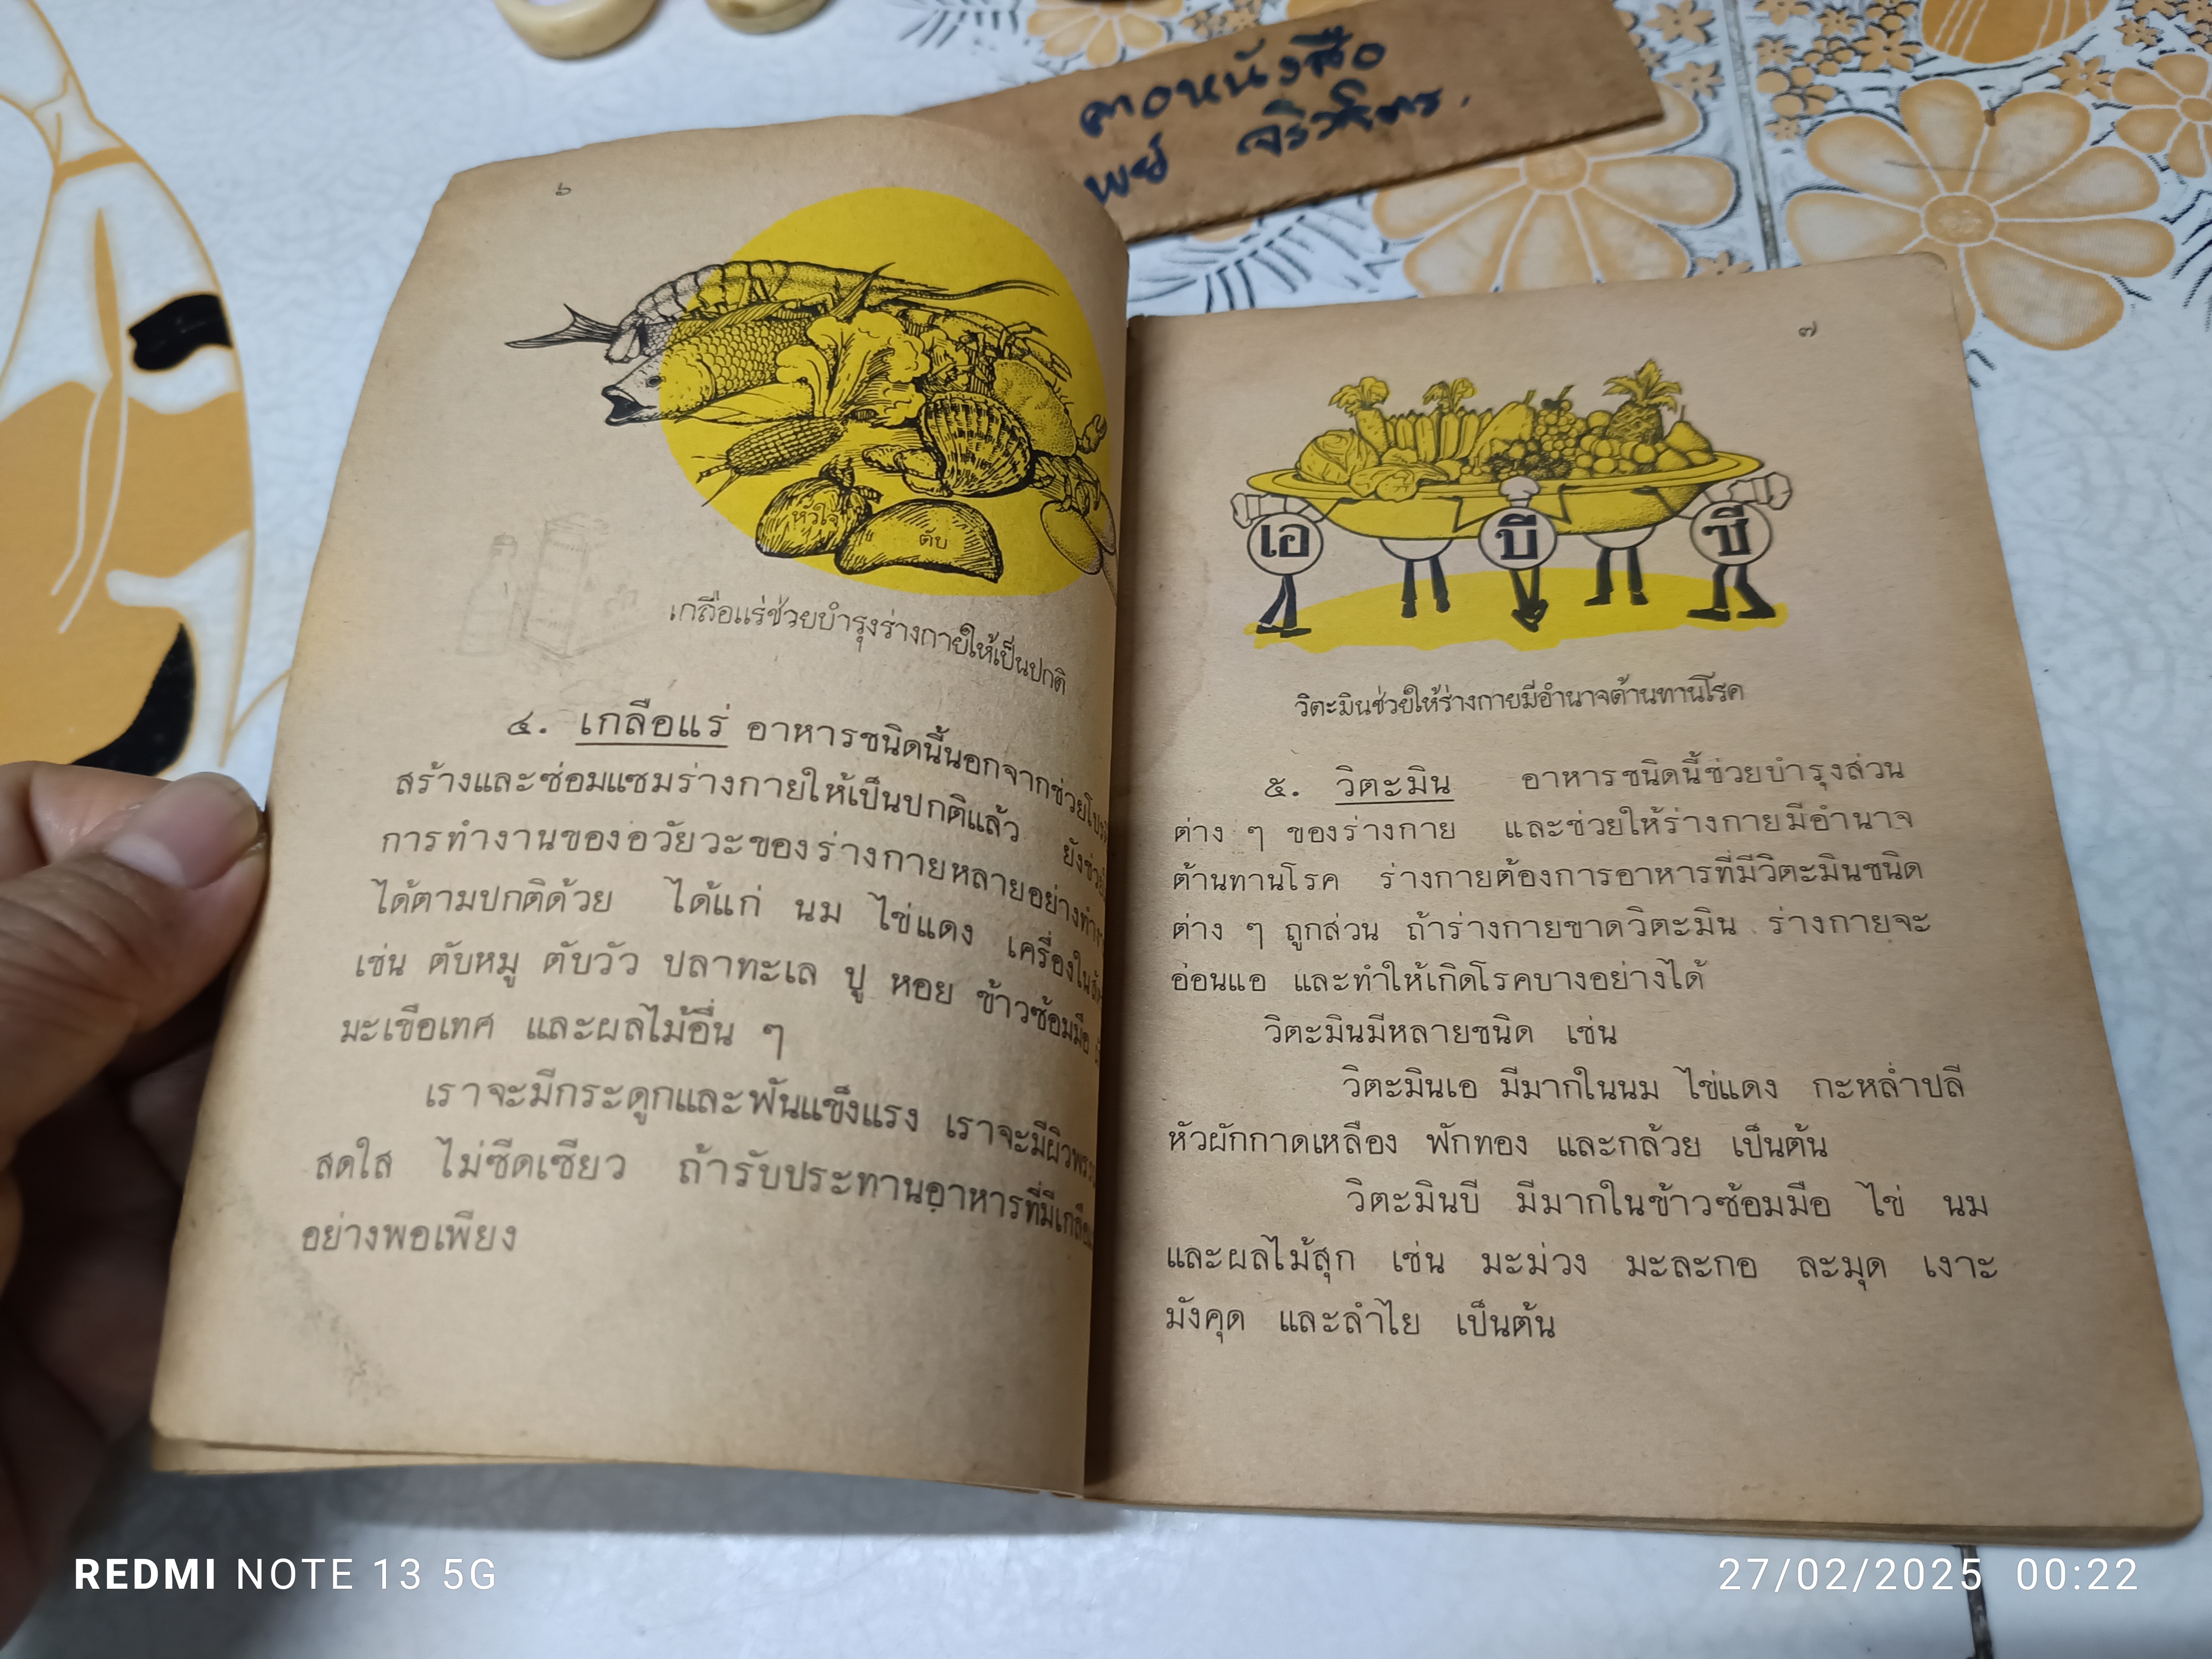 คอหนังสือ
พย์
๖
หัวใจ
ตับ
เกลือแร่ช่วยบำรุงร่างกายให้เป็นปกติ
๔. เกลือแร่ อาหารชนิดนี้นอกจากช่วย
สร้างและซ่อมแซมร่างกายให้เป็นปกติแล้ว
การทำงานของอวัยวะของร่างกายหลายอย่าง
ได้ตามปกติด้วย ได้แก่ นม ไข่แดง เครื่องใน
เช่น ตับหมู ตับวัว ปลาทะเล ปู หอย ข้าวซ้อมมือ
มะเขือเทศ และผลไม้อื่น ๆ
เราจะมีกระดูกและฟันแข็งแรง เราจะมีผิว
สดใส ไม่ซีดเซียว ถ้ารับประทานอาหารที่มี
อย่างพอเพียง
๗
เอ บี ซี
วิตะมินช่วยให้ร่างกายมีอำนาจต้านทานโรค
๕. วิตะมิน อาหารชนิดนี้ช่วยบำรุงส่วน
ต่าง ๆ ของร่างกาย และช่วยให้ร่างกายมีอำนาจ
ต้านทานโรค ร่างกายต้องการอาหารที่มีวิตะมินชนิด
ต่าง ๆ ถูกส่วน ถ้าร่างกายขาดวิตะมิน ร่างกายจะ
อ่อนแอ และทำให้เกิดโรคบางอย่างได้
วิตะมินมีหลายชนิด เช่น
วิตะมินเอ มีมากในนม ไข่แดง กะหล่ำปลี
หัวผักกาดเหลือง ฟักทอง และกล้วย เป็นต้น
วิตะมินบี มีมากในข้าวซ้อมมือ ไข่ นม
และผลไม้สุก เช่น มะม่วง มะละกอ ละมุด เงาะ
มังคุด และลำไย เป็นต้น
REDMI NOTE 13 5G
27/02/2025 00:22